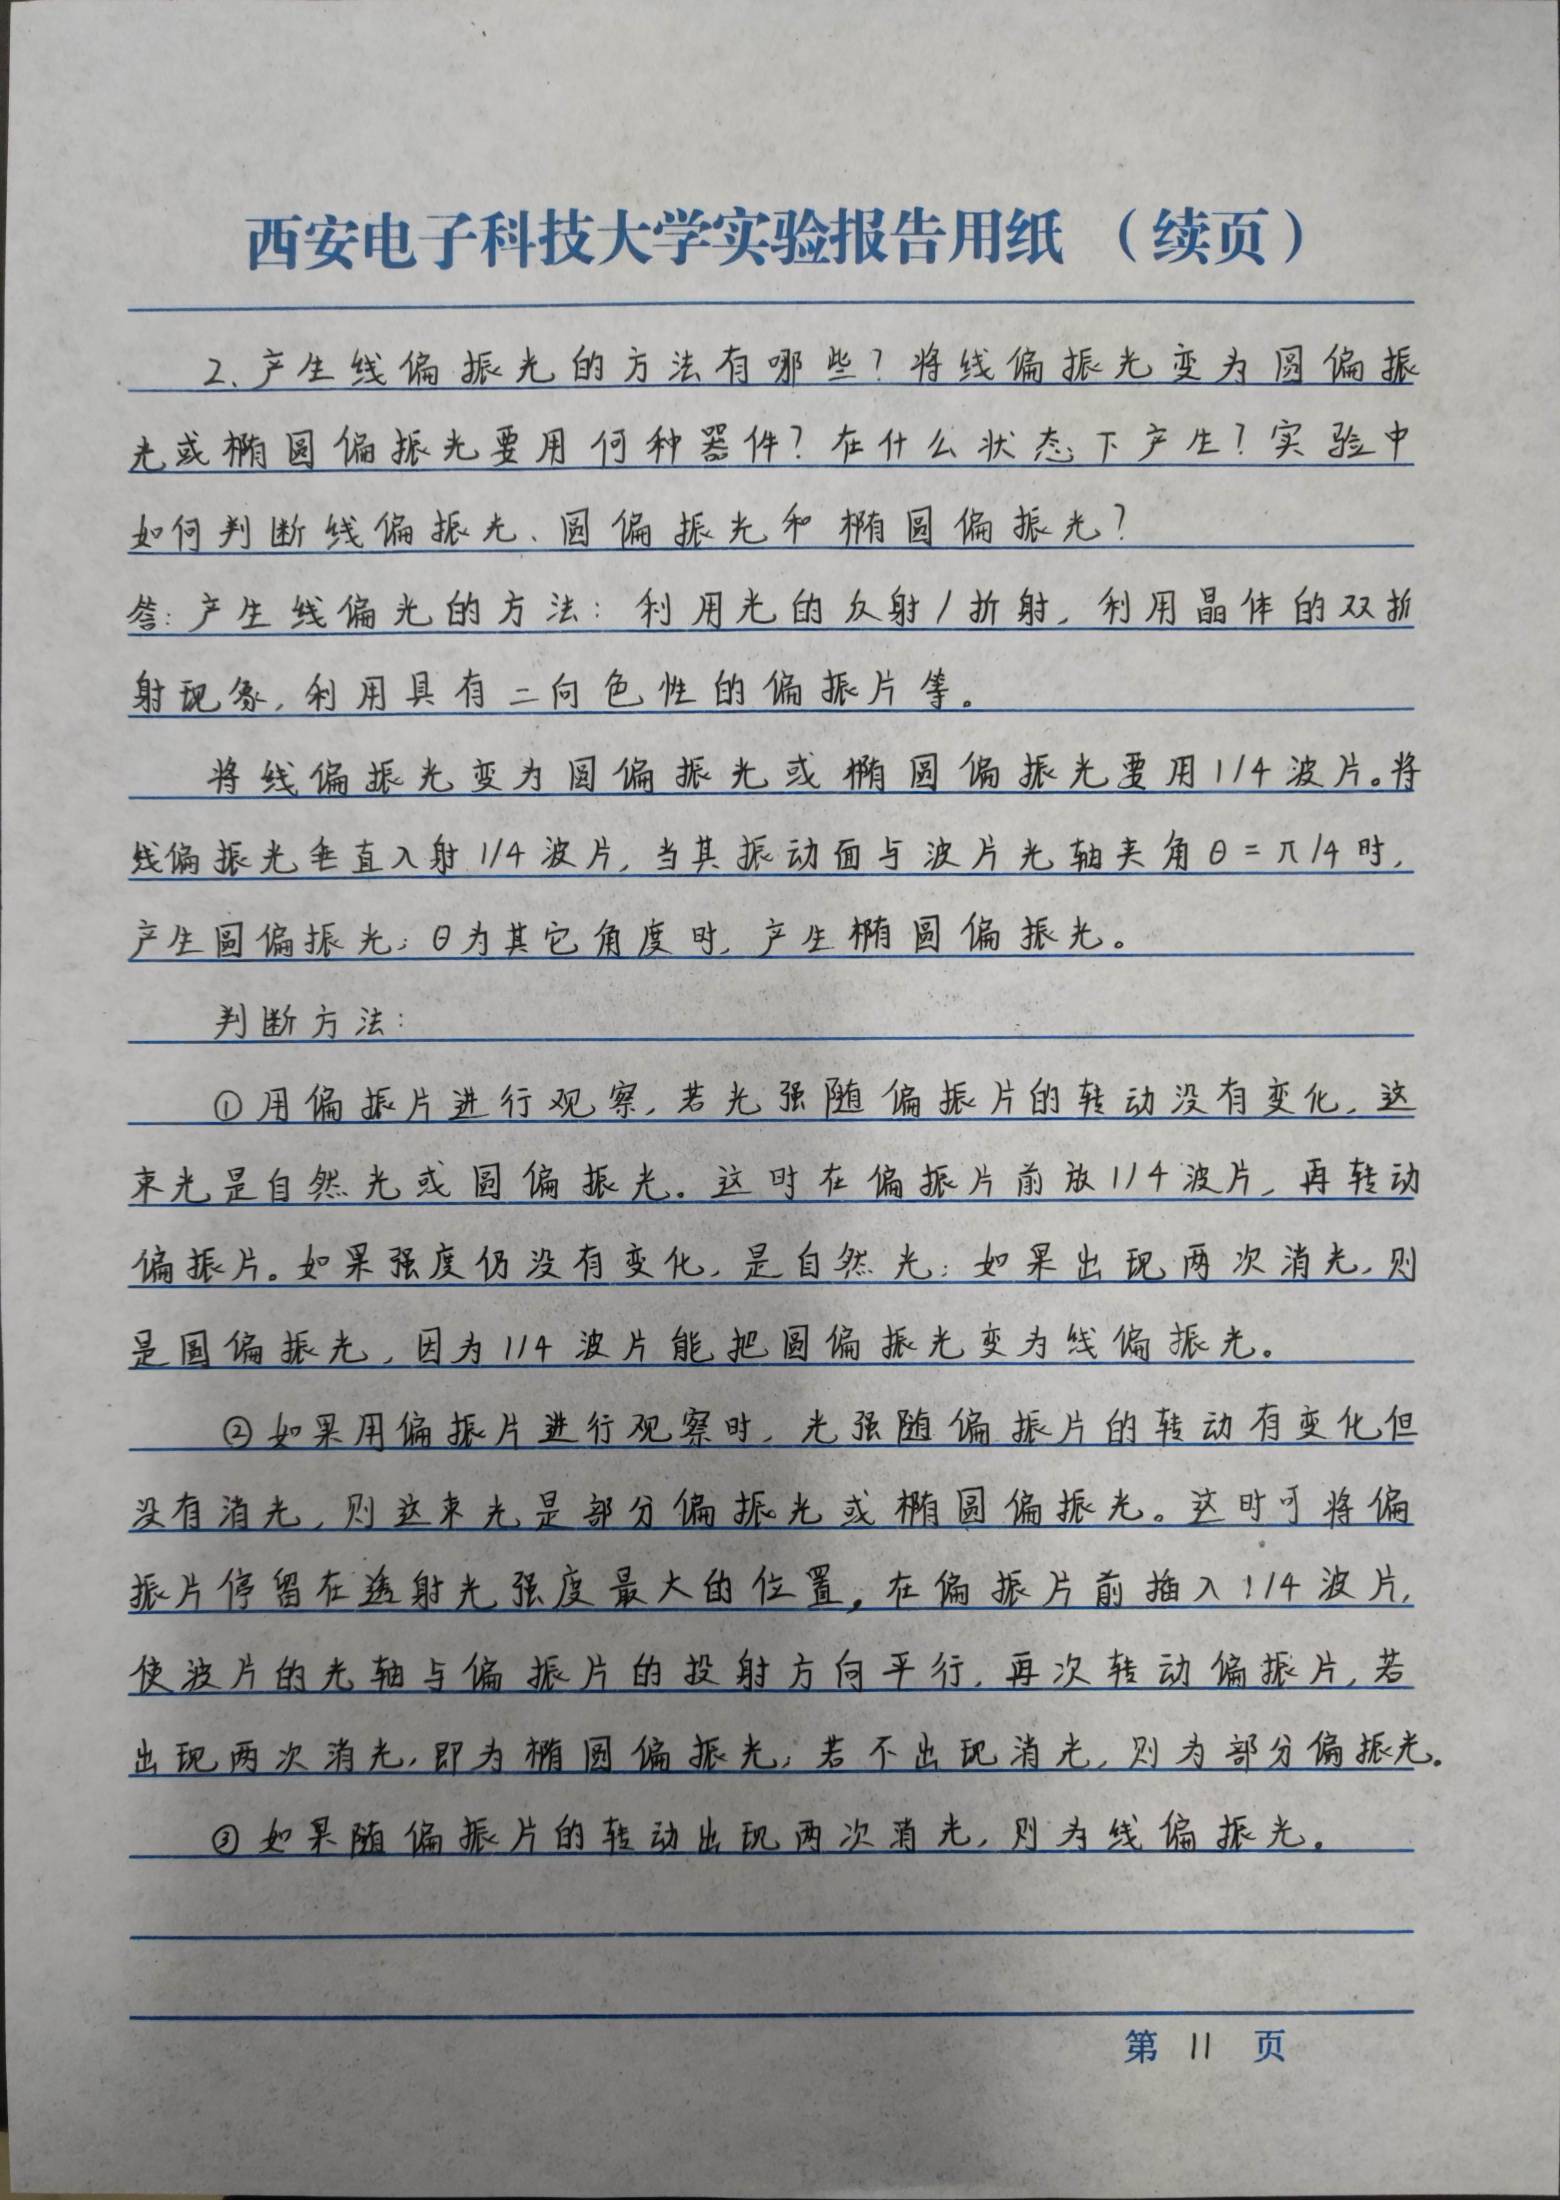 西安电子科技大学实验报告用纸（续页）
2、产生线偏振光的方法有哪些？将线偏振光变为圆偏振
光或椭圆偏振光要用何种器件？在什么状态下产生？实验中
如何判断线偏振光、圆偏振光和椭圆偏振光？
答：产生线偏光的方法：利用光的反射/折射，利用晶体的双折
射现象，利用具有二向色性的偏振片等。
将线偏振光变为圆偏振光或椭圆偏振光要用1/4波片。将
线偏振光垂直入射1/4波片，当其振动面与波片光轴夹角θ=π/4时，
产生圆偏振光；θ为其它角度时，产生椭圆偏振光。
判断方法：
①用偏振片进行观察，若光强随偏振片的转动没有变化，这
束光是自然光或圆偏振光。这时在偏振片前放1/4波片，再转动
偏振片。如果强度仍没有变化，是自然光；如果出现两次消光，则
是圆偏振光，因为1/4波片能把圆偏振光变为线偏振光。
②如果用偏振片进行观察时，光强随偏振片的转动有变化但
没有消光，则这束光是部分偏振光或椭圆偏振光。这时可将偏
振片停留在透射光强度最大的位置，在偏振片前插入1/4波片，
使波片的光轴与偏振片的投射方向平行，再次转动偏振片，若
出现两次消光，即为椭圆偏振光；若不出现消光，则为部分偏振光。
③如果随偏振片的转动出现两次消光，则为线偏振光。
第 11 页